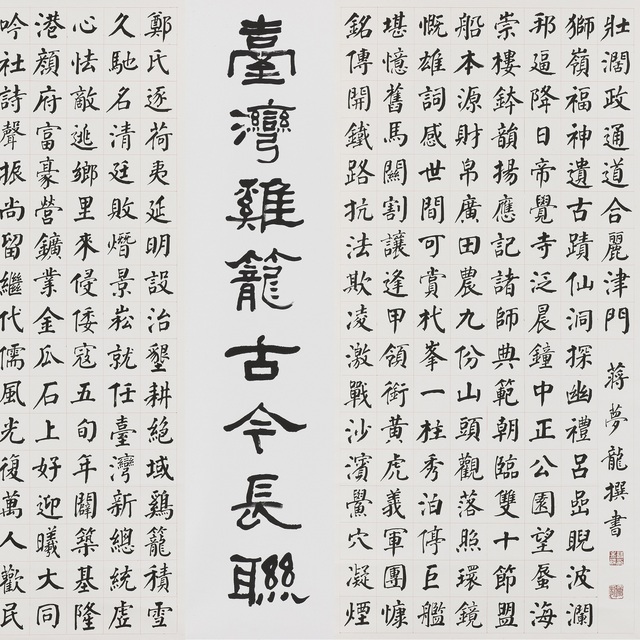 臺灣雞籠古今長聯
鄭氏逐荷夷延明設治墾耕絕域鷄籠積雪
久馳名清廷敗熸景崧就任臺灣新總統虛
心怯敵逃鄉里來侵倭寇五旬年闢築基隆
港顏府富豪營鑛業金瓜石上好迎曦大同
吟社詩聲振尚留繼代儒風光復萬人歡民
銘傳開鐵路抗法欺凌激戰沙濱鱟穴凝煙
堪憶舊馬關割讓逢甲領銜黃虎義軍團慷
慨雄詞感世間可賞杙峯一柱秀泊停巨艦
船本源財帛廣田農九份山頭觀落照環鏡
崇樓鉢韻揚應記諸師典範朝臨雙十節盟
邦逼降日帝覺寺泛晨鐘中正公園望蜃海
獅嶺福神遺古蹟仙洞探幽禮呂嵒睨波瀾
壯濶政通道合麗津門
蔣夢龍撰書